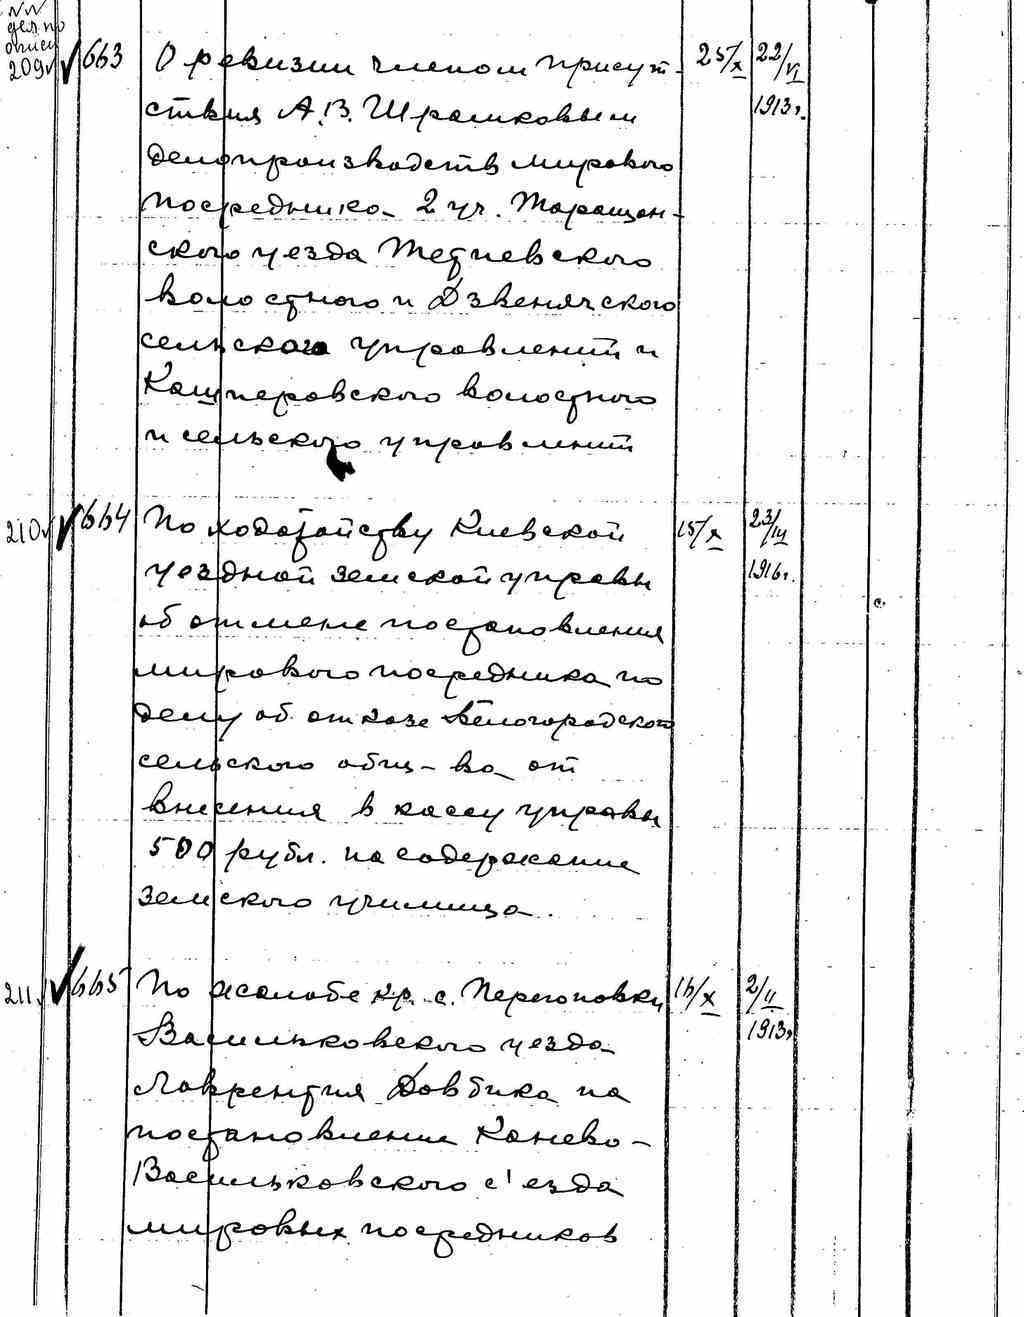 NN
дел по
описи
209 663 О ревизии членом присут-
ствия А.В. Шрамковым
делопроизводств мирового
посредника 2 уч. Таращан-
ского уезда
волостного и Дзвенячского
сельского управлений и
Кашперовского волостного
и сельского управлений
25/X 22/VI
1913г.
210 664 По ходатайству Киевской
уездной земской управы
об отмене постановления
мирового посредника по
делу об отказе Белогородского
сельского общ-ва от
внесения в кассу управы
500 рубл. на содержание
земского училища.
15/X 23/III
1916г.
211 665 По жалобе кр. с. Перегоновки
Васильковского уезда
Лаврентия Довбика на
постановление Канево-
Васильковского с'езда
мировых посредников
16/X 2/II
1913г